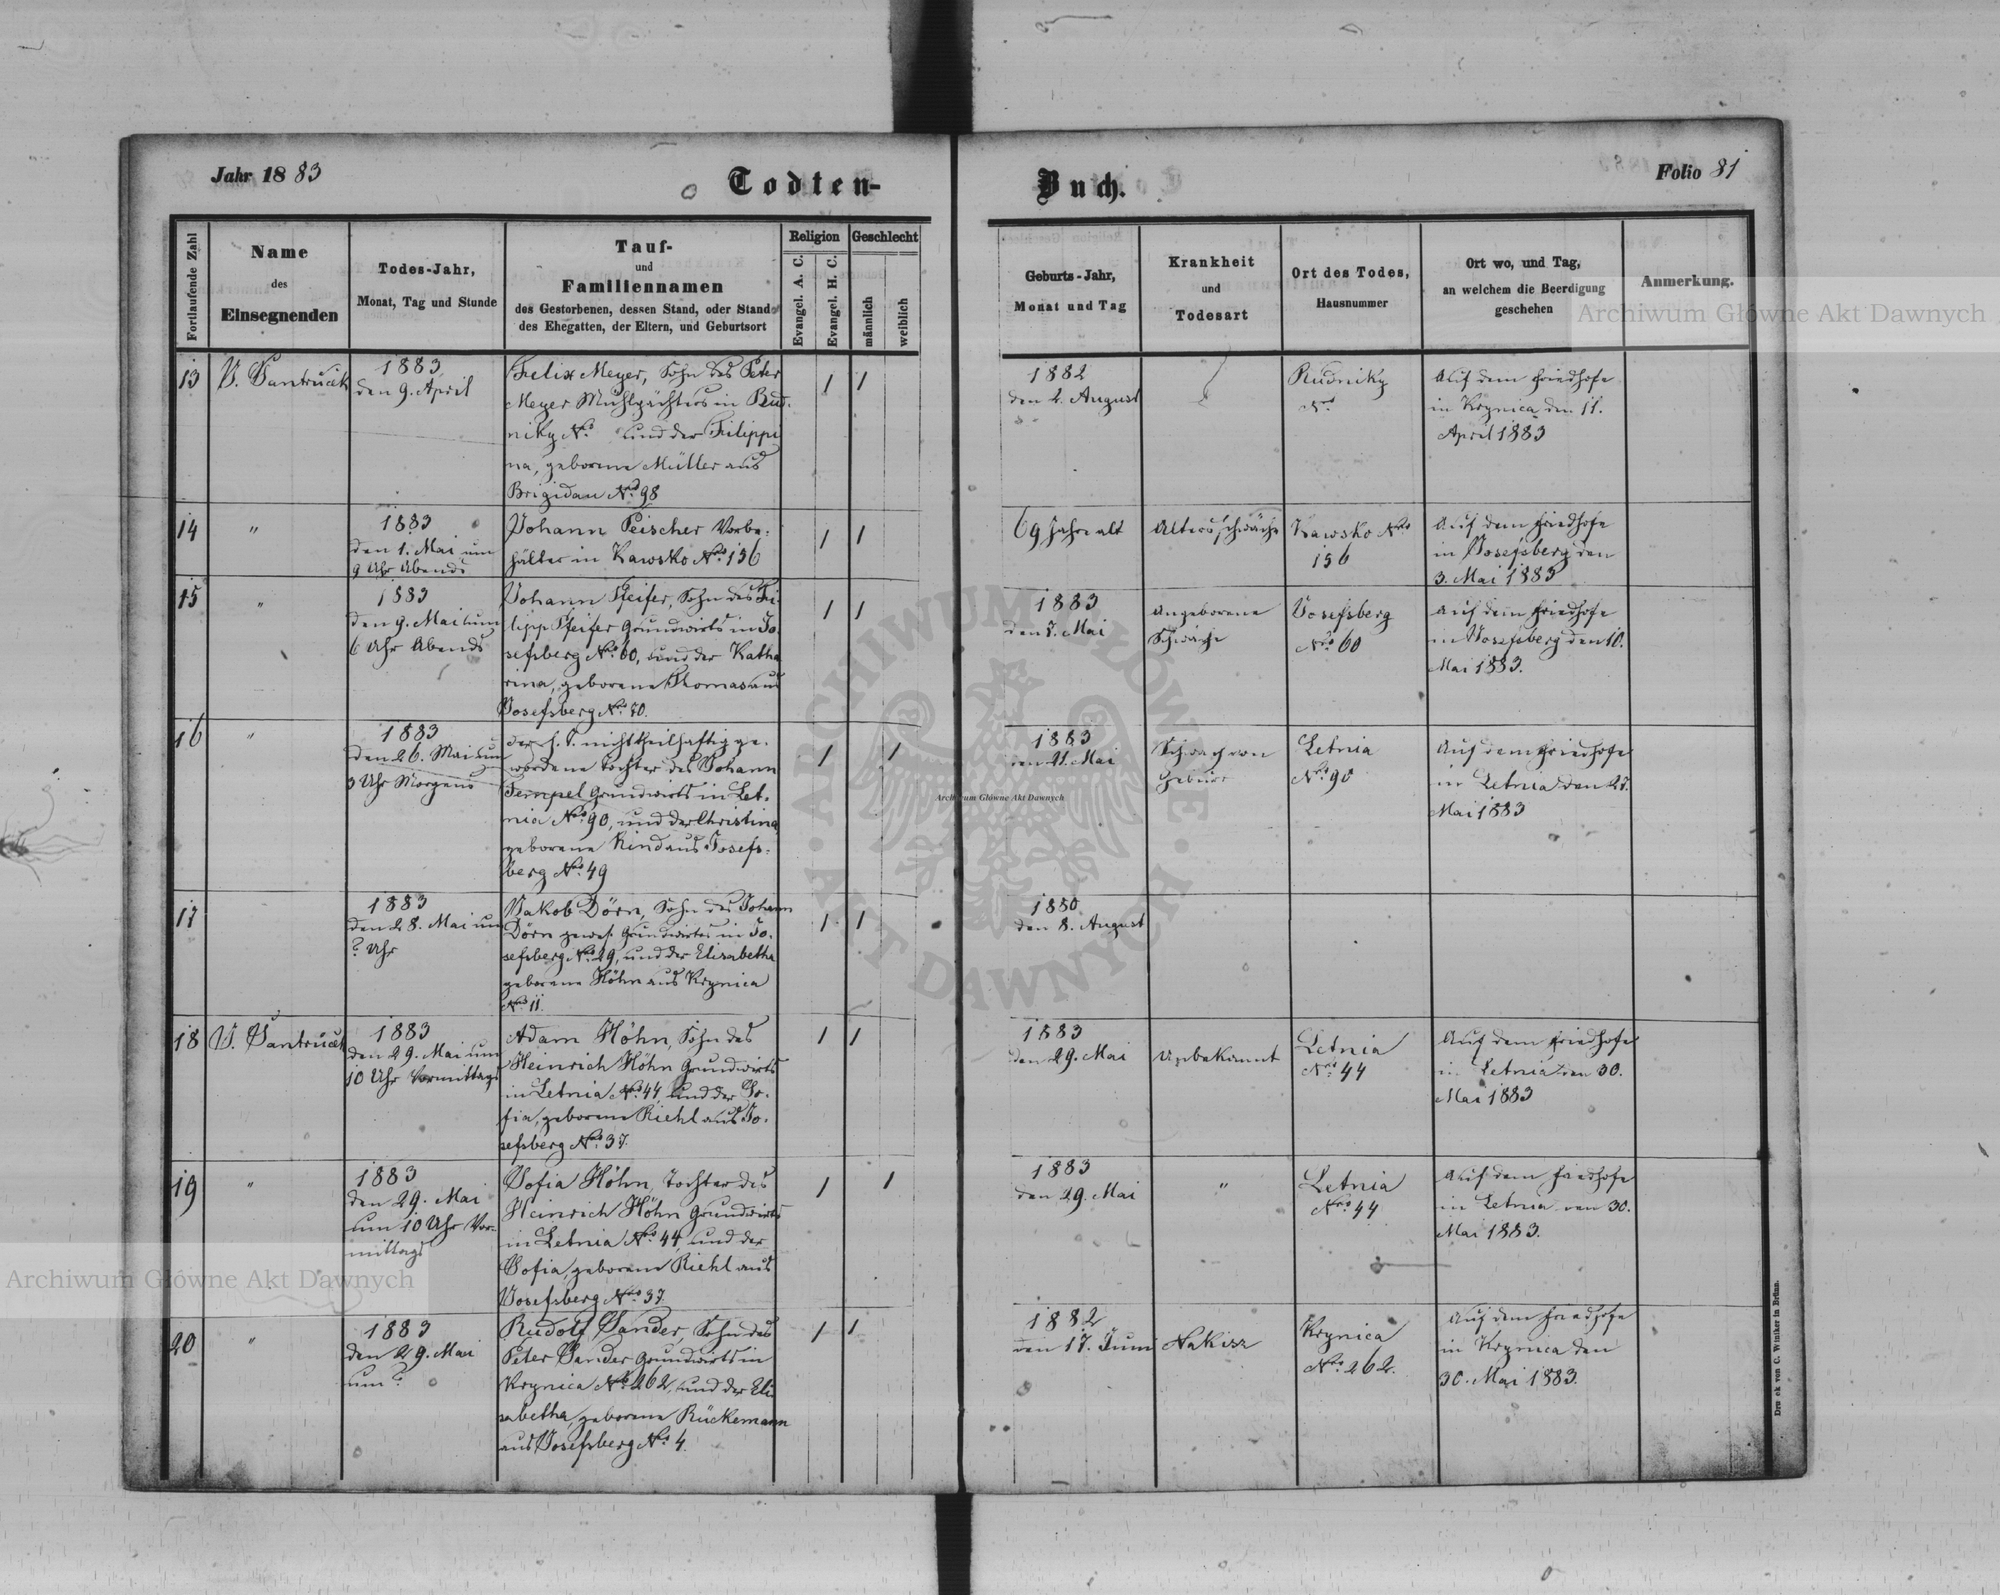 Jahr 1883
Todten-
Buch.
Folio 81
Fortlaufende Zahl
Name
des
Einsegnenden
Todes-Jahr,
Monat, Tag und Stunde
Tauf-
und
Familiennamen
des Gestorbenen, dessen Stand, oder Stand
des Ehegatten, der Eltern, und Geburtsort
Religion
Evangel. A. C.
Evangel. H. C.
Geschlecht
männlich
weiblich
Geburts-Jahr,
Monat und Tag
Krankheit
und
Todesart
Ort des Todes,
Hausnummer
Ort wo, und Tag,
an welchem die Beerdigung
geschehen
Anmerkung.
13
Santruček
1883
den 9. April
Felix Meyer, Sohn des Peter
Meyer Mühlpächters in Rud-
niky No. und der Filippi
na, geborene Müller aus
Brigidau No. 98
1 1
1882
den 2. August
Rudniky
No.
Auf dem Friedhofe
in Krynica den 11.
April 1883
14
"
1883
den 1. Mai um
9 Uhr Abends
Johann Peischer Vorbe-
hälter in Kawsko No. 156
1 1
69 Jahre alt
Altersschwäche
Kawsko No.
156
Auf dem Friedhofe
in Josefsberg den
3. Mai 1883
15
"
1883
den 9. Mai um
6 Uhr Abends
Johann Pfeifer, Sohn des Fi-
lipp Pfeifer Grundwirts in Jo-
sefsberg No. 60, und der Katha
rina, geborene Thomas aus
Josefsberg No. 70.
1 1
1883
den 7. Mai
Angeborene
Schwäche
Josefsberg
No. 60
Auf dem Friedhofe
in Josefsberg den 10.
Mai 1883.
16
"
1883
den 26. Mai um
3 Uhr Morgens
der h. T. nicht theilhaftig ge-
wordene Tochter des Johann
Tempel Grundwirts in Let-
nia No. 90, und der Christina,
geborene Rind aus Josefs-
berg No. 49
1 1
1883
den 21. Mai
Schwach von
Geburt
Letnia
No. 90
Auf dem Friedhofe
in Letnia den 27.
Mai 1883
17
1883
den 28. Mai um
? Uhr
Jakob Dörn, Sohn des Johann
Dörn gewes. Grundwirtes in Jo-
sefsberg No. 29, und der Elisabetha
geborene Höhn aus Krynica
No. 11.
1 1
1880
den 8. August
18
Santruček
1883
den 29. Mai um
10 Uhr Vormittags
Adam Höhn, Sohn des
Heinrich Höhn Grundwirts
in Letnia No. 44, und der So-
fia, geborene Riehl aus Jo-
sefsberg No. 37.
1 1
1883
den 29. Mai
Unbekannt
Letnia
No. 44
Auf dem Friedhofe
in Letnia den 30.
Mai 1883
19
"
1883
den 29. Mai
um 10 Uhr Vor-
mittags
Sofia Höhn, Tochter des
Heinrich Höhn Grundwirts
in Letnia No. 44, und der
Sofia, geborene Riehl aus
Josefsberg No. 37.
1 1
1883
den 29. Mai
"
Letnia
No. 44
Auf dem Friedhofe
in Letnia den 30.
Mai 1883.
20
"
1883
den 29. Mai
um ?
Rudolf Sander, Sohn des
Peter Sander Grundwirts in
Krynica No. 262, und der Eli
sabetha, geborene Rückemann
aus Josefsberg No. 4.
1 1
1882
den 17. Juni
Krynica
No. 262.
Auf dem Friedhofe
in Krynica den
30. Mai 1883.
Druck von C. Winiker in Brünn.
Archiwum Główne Akt Dawnych
Archiwum Główne Akt Dawnych
Archiwum Główne Akt Dawnych
ARCHIWUM GŁÓWNE
AKT DAWNYCH